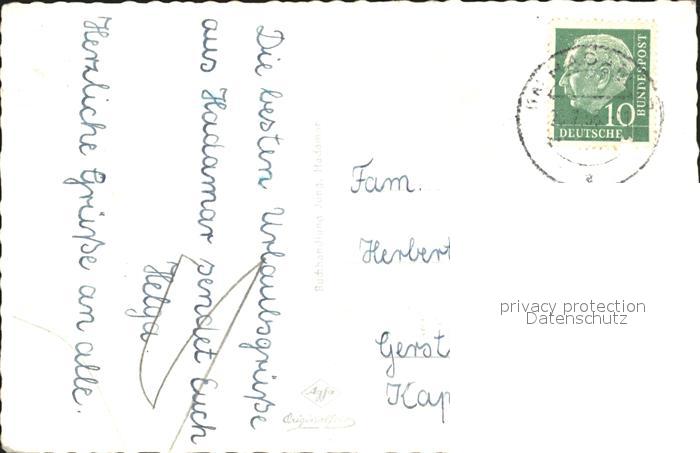 Die besten Urlaubsgrüße
aus Hadamar sendet Euch
Helga
Herzliche Grüße an alle.
Buchhandlung Jung, Hadamar
Agfa
Fam.
Herbert
Gerst
Kap
10
DEUTSCHE
BUNDESPOST
a
privacy protection
Datenschutz